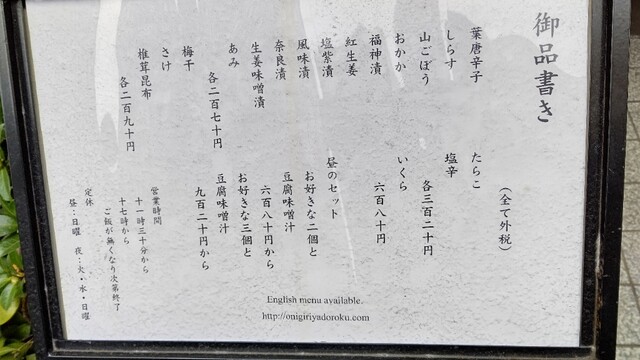 御品書き
(全て外税)
葉唐辛子
しらす
山ごぼう
おかか
福神漬
紅生姜
塩紫漬
風味漬
奈良漬
生姜味噌漬
あみ
各二百七十円
梅干
さけ
椎茸昆布
各二百九十円
たらこ
塩辛
各三百二十円
いくら
六百八十円
昼のセット
お好きな二個と
豆腐味噌汁
六百八十円から
お好きな三個と
豆腐味噌汁
九百二十円から
営業時間
十一時三十分から
十七時から
ご飯が無くなり次第終了
定休
昼:日曜 夜:火・水・日曜
English menu available.
http://onigiriyadoroku.com